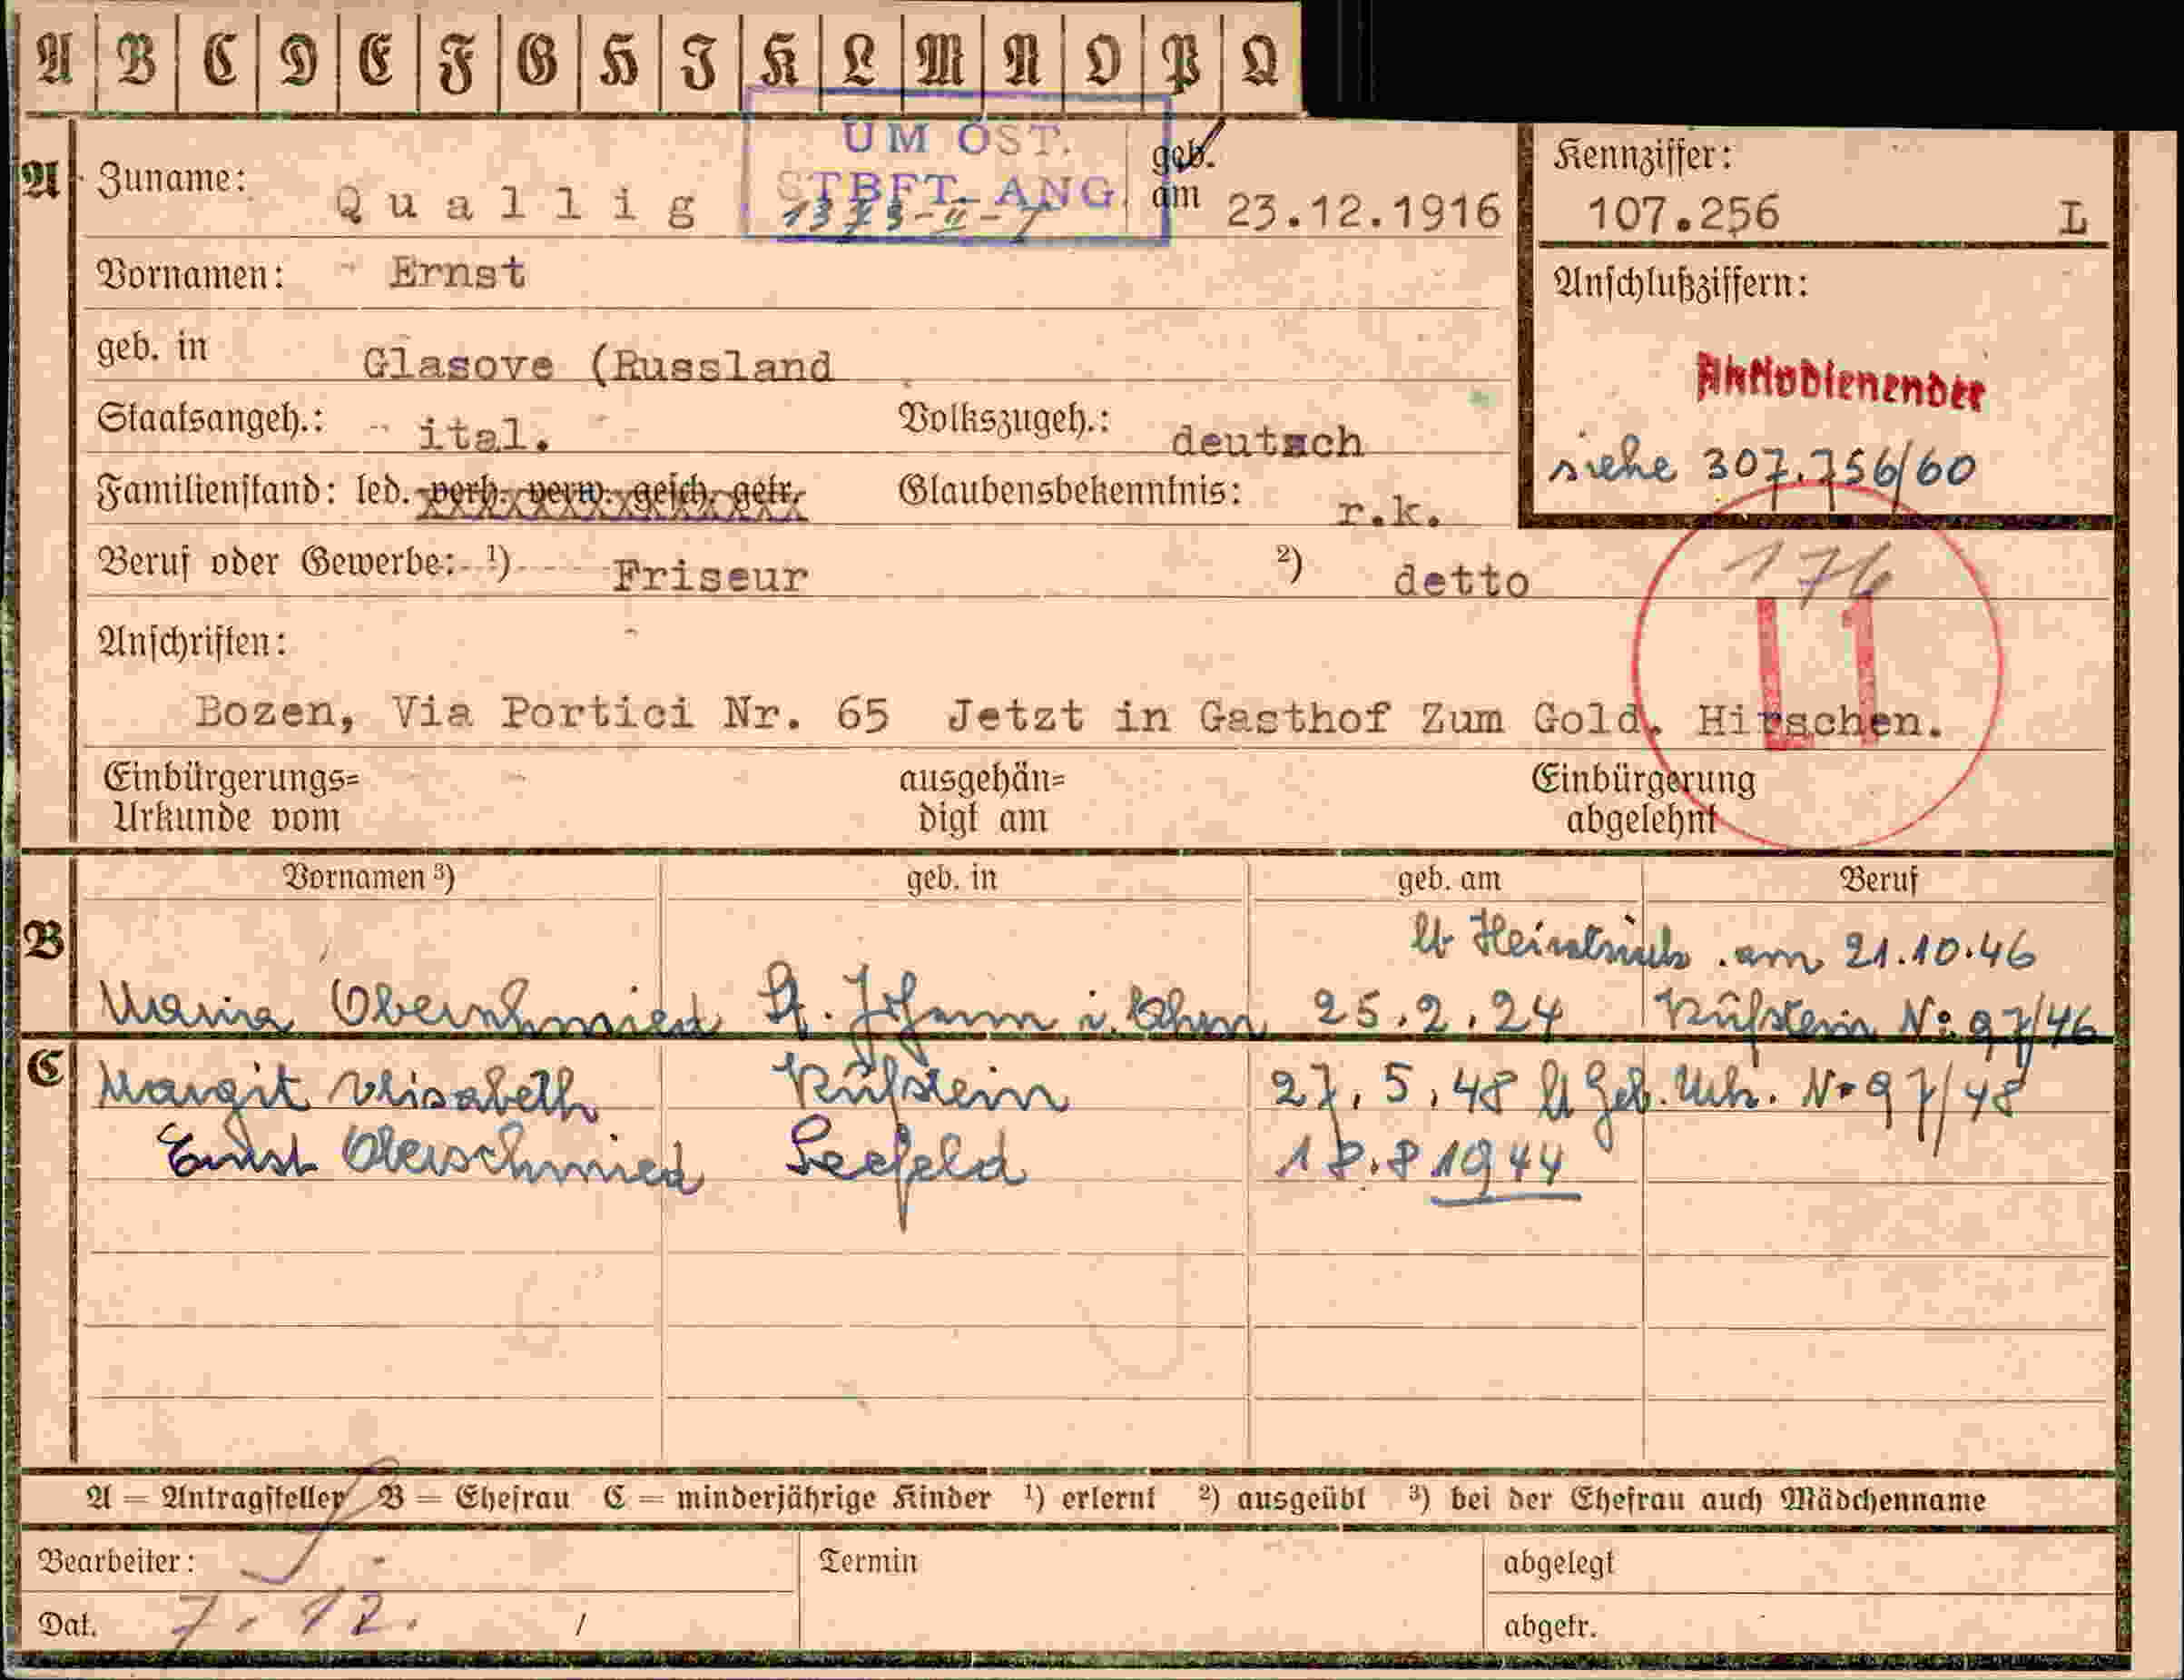 A B C D E F G H I K L M N O P Q
UM ÖST.
STBFT.-ANG.
A Zuname: Quallig geb. am 23.12.1916
Kennziffer: 107.256 L
Vornamen: Ernst
Anschlußziffern:
geb. in Glasove (Russland
Aktivdienender
Staatsangeh.: ital. Volkszugeh.: deutsch
siehe 307.756/60
Familienstand: led. verh. verw. gesch. getr. Glaubensbekenntnis: r.k.
176
Beruf oder Gewerbe: 1) Friseur 2) detto
L1
Anschriften:
Bozen, Via Portici Nr. 65 Jetzt in Gasthof Zum Gold. Hirschen.
Einbürgerungs= ausgehän= Einbürgerung
Urkunde vom digt am abgelehnt
Vornamen 3) geb. in geb. am Beruf
B
lt Heiratsurk. am 21.10.46
Maria Oberschmied St. Johann i. Ahrn 25.2.24 Kufstein No 97/46
C Margit Elisabeth Kufstein 27.5.48 lt Geb. Urk. No 97/48
Ernst Oberschmied Seefeld 18.8 1944
A = Antragsteller B = Ehefrau C = minderjährige Kinder 1) erlernt 2) ausgeübt 3) bei der Ehefrau auch Mädchenname
Bearbeiter: Termin abgelegt
Dat. 7.12. / abgetr.